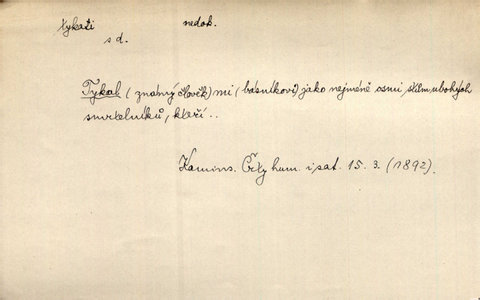 tykati nedok.
s d.
Tykal (známý člověk) mi (básníkovi) jako nejméně osmi stům ubohých
smrtelníků, kteří..
Kamins. Črty hum. i sat. 15. 3. (1892).